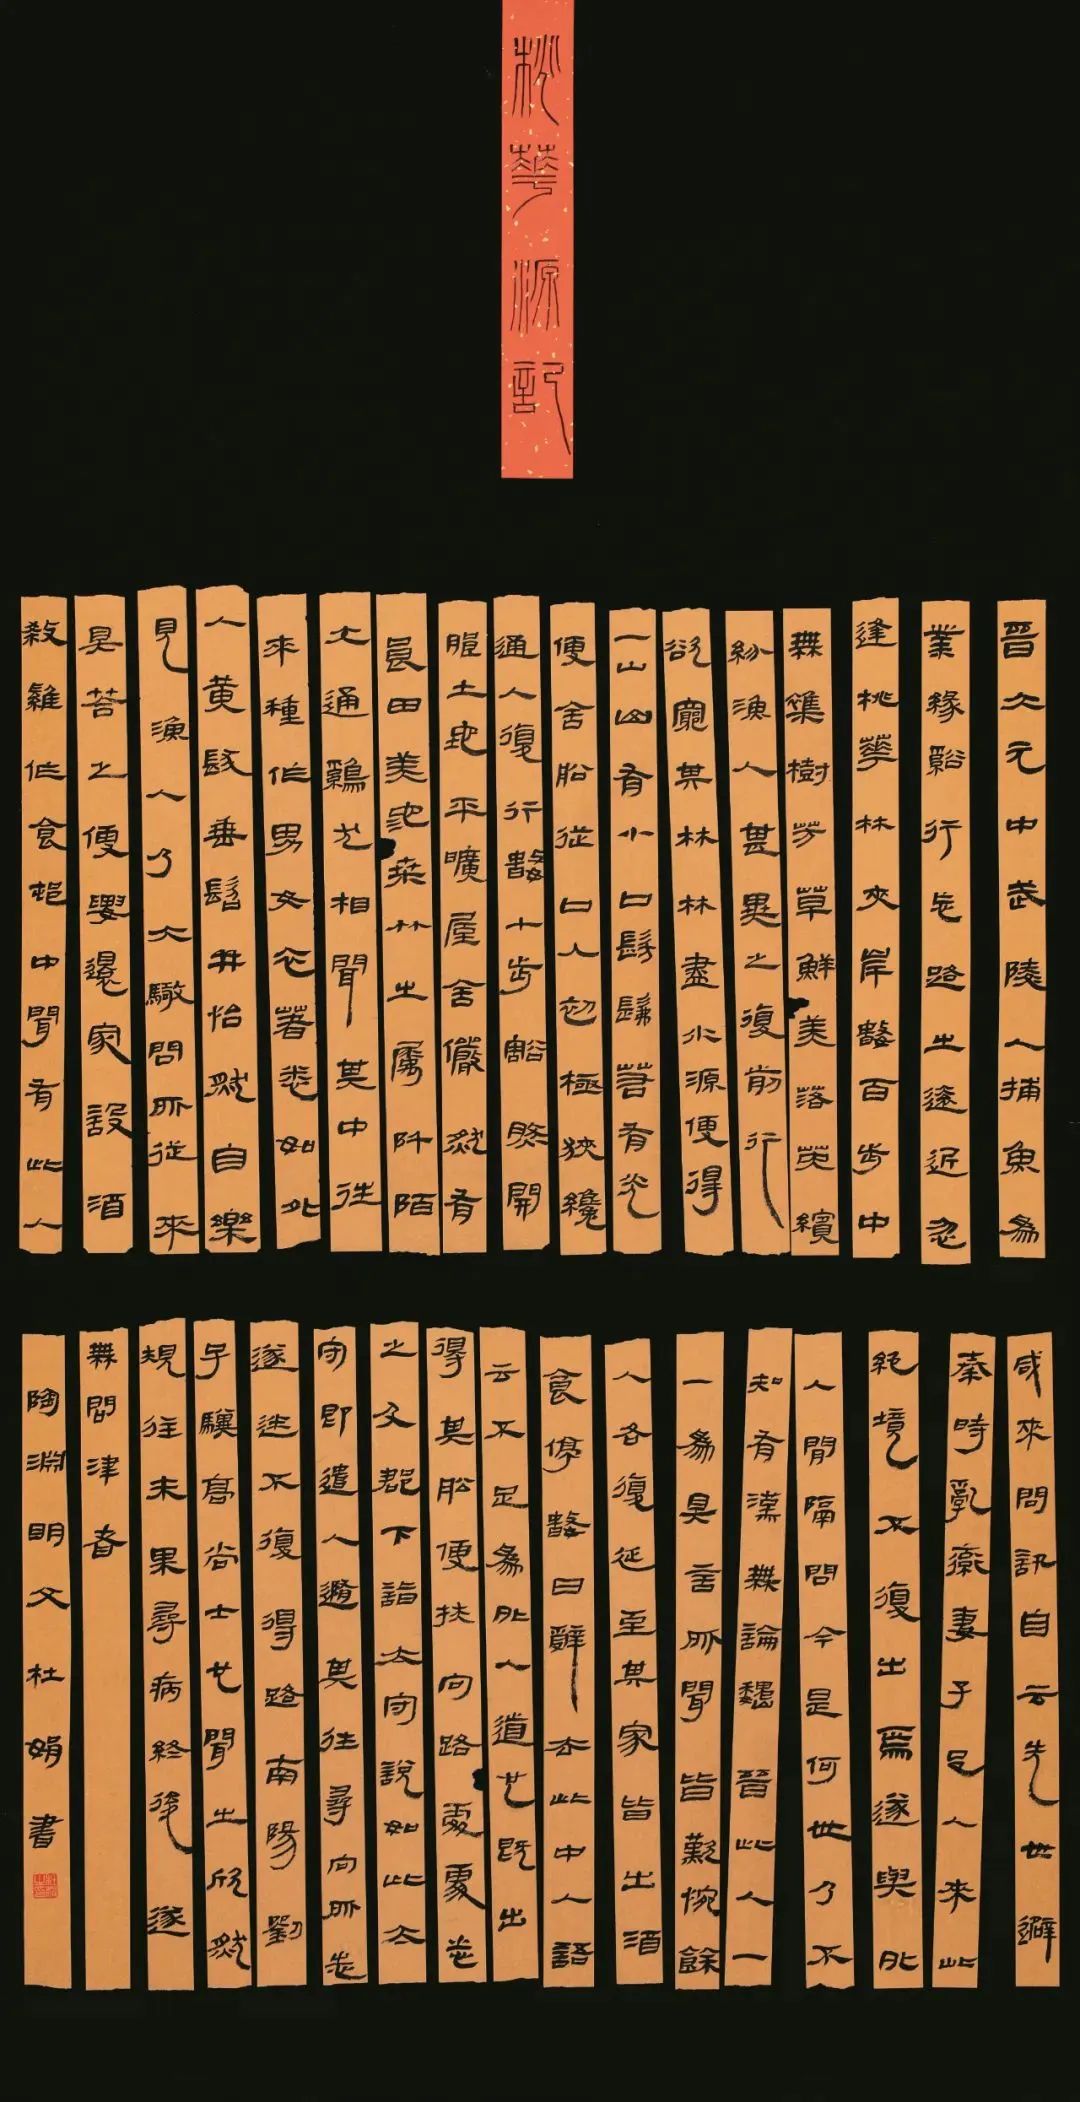 桃華源記
晉太元中武陵人捕魚為
業緣谿行忘路之遠近忽
逢桃華林夾岸數百步中
無雜樹芳草鮮美落英繽
紛漁人甚異之復前行
欲窮其林林盡水源便得
一山山有小口髣髴若有光
便舍船從口入初極狹纔
通人復行數十步豁然開
朗土地平曠屋舍儼然有
良田美池桑竹之屬阡陌
交通雞犬相聞其中往
來種作男女衣著悉如外
人黃髮垂髫并怡然自樂
見漁人乃大驚問所從來
具荅之便要還家設酒
殺雞作食邨中聞有此人
咸來問訊自云先世避
秦時亂率妻子邑人來此
絕境不復出焉遂與外
人間隔問今是何世乃不
知有漢無論魏晉此人一
一為具言所聞皆歎惋餘
人各復延至其家皆出酒
食停數日辭去此中人語
云不足為外人道也既出
得其船便扶向路處處志
之及郡下詣太守說如此太
守即遣人隨其往尋向所志
遂迷不復得路南陽劉
子驥高尚士也聞之欣然
規往未果尋病終後遂
無問津者
陶淵明文杜娟書